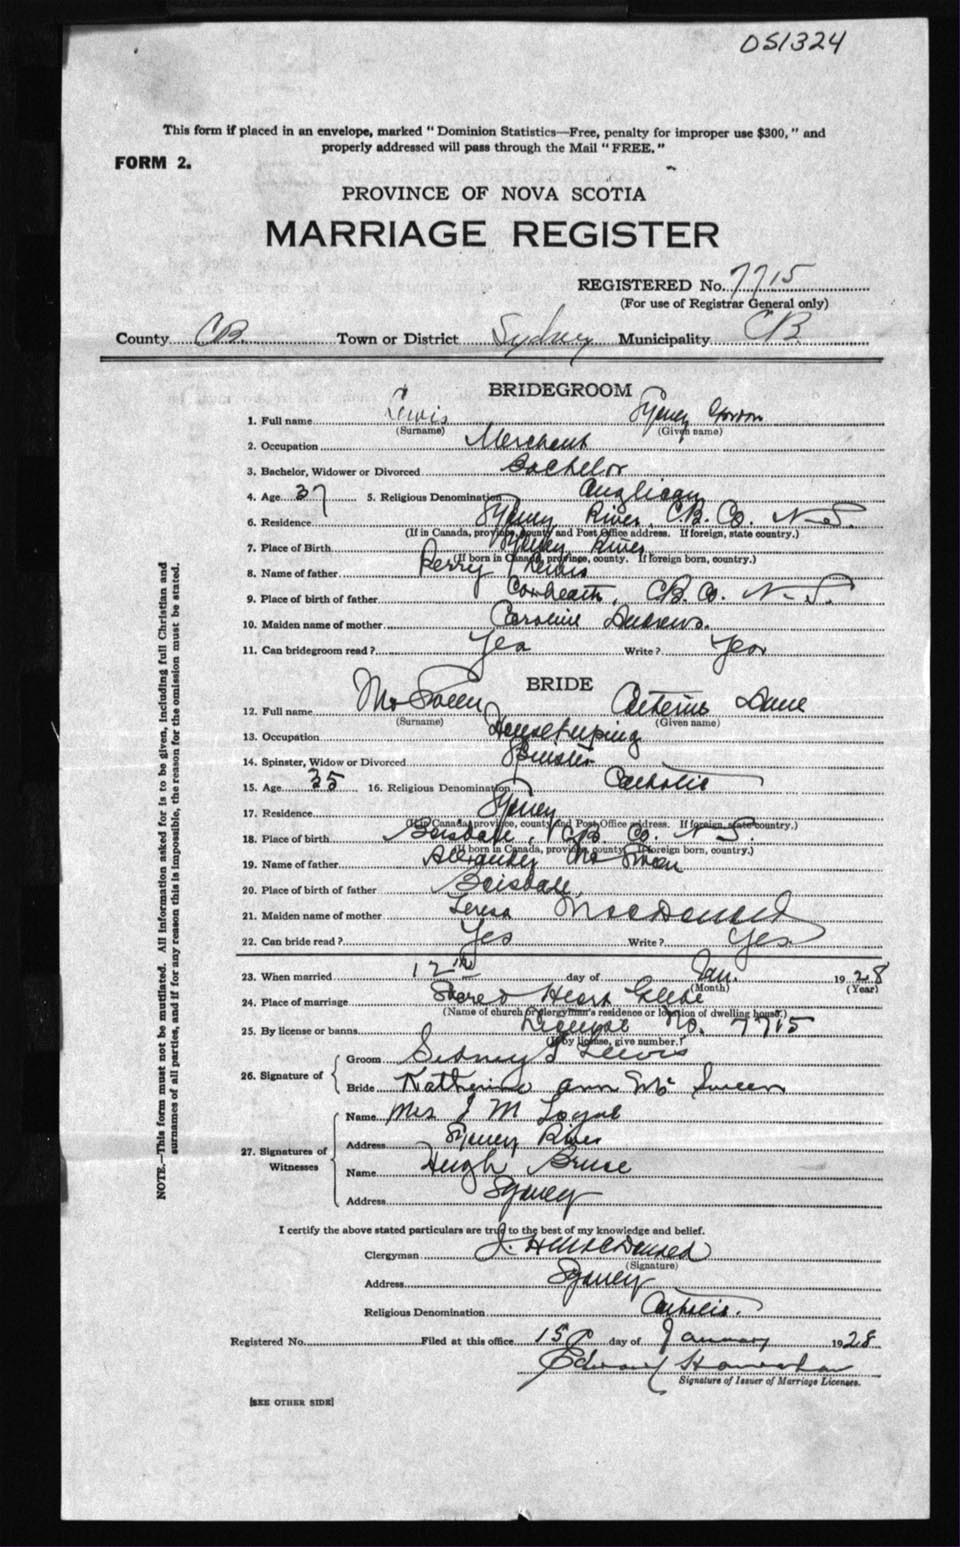 051324
This form if placed in an envelope, marked "Dominion Statistics—Free, penalty for improper use $300," and
properly addressed will pass through the Mail "FREE."
FORM 2.
PROVINCE OF NOVA SCOTIA
MARRIAGE REGISTER
REGISTERED No. 7715
(For use of Registrar General only)
County CB. Town or District Sydney Municipality CB
BRIDEGROOM
1. Full name Lewis Sydney Gordon
(Surname) (Given name)
2. Occupation Merchant
3. Bachelor, Widower or Divorced Bachelor
4. Age 37 5. Religious Denomination Anglican
6. Residence Sydney River, CB. Co. N.S.
(If in Canada, province, county and Post Office address. If foreign, state country.)
7. Place of Birth Sydney River
(If born in Canada, province, county. If foreign born, country.)
8. Name of father Perry Lewis
9. Place of birth of father Coxheath, CB. Co. N.S.
10. Maiden name of mother Caroline Andrews.
11. Can bridegroom read? Yea Write? Yea
BRIDE
12. Full name McSween Catherine Anne
(Surname) (Given name)
13. Occupation Housekeeping
14. Spinster, Widow or Divorced Spinster
15. Age 35 16. Religious Denomination Catholic
17. Residence Sydney
(If in Canada, province, county and Post Office address. If foreign, state country.)
18. Place of birth Boisdale, CB Co. N.S.
(If born in Canada, province, county. If foreign born, country.)
19. Name of father Alexander McSween
20. Place of birth of father Boisdale,
21. Maiden name of mother Teresa MacDonald
22. Can bride read? Yes Write? Yes.
23. When married 12th day of Jan. 1928
(Month) (Year)
24. Place of marriage Sacred Heart Glebe
(Name of church or clergyman's residence or location of dwelling house.)
25. By license or banns License No. 7715
(If by license, give number.)
26. Signature of
Groom Sidney G Lewis
Bride Katherine ann Mc Sween
27. Signatures of Witnesses
Name Mrs J M
Address Sydney River
Name Hugh Bruce
Address Sydney
I certify the above stated particulars are true to the best of my knowledge and belief.
Clergyman J. H MacDonald
(Signature)
Address Sydney
Religious Denomination Catholic.
Registered No. Filed at this office 15 day of January 1928
Edward
Signature of Issuer of Marriage Licenses.
[SEE OTHER SIDE]
NOTE.—This form must not be mutilated. All information asked for is to be given, including full Christian and
surnames of all parties, and if for any reason this is impossible, the reason for the omission must be stated.